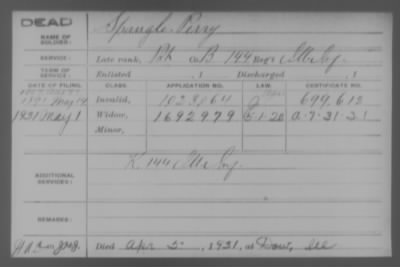 DEAD
NAME OF SOLDIER:
Spangle, Perry
SERVICE:
Late rank, Pvt Co. B, 144 Reg't Ills Inf.
TERM OF SERVICE:
Enlisted , 1 Discharged , 1
DATE OF FILING. CLASS. APPLICATION NO. LAW. CERTIFICATE NO.
1891 May 14 Invalid, 1023064 699,612
1921 May 1 Widow, 1692979 5-1-20 a.7.31.21
Minor,
ADDITIONAL SERVICES:
K. 144 Ills Inf.
REMARKS:
Died Apr 5, 1921, at Dow, Ill